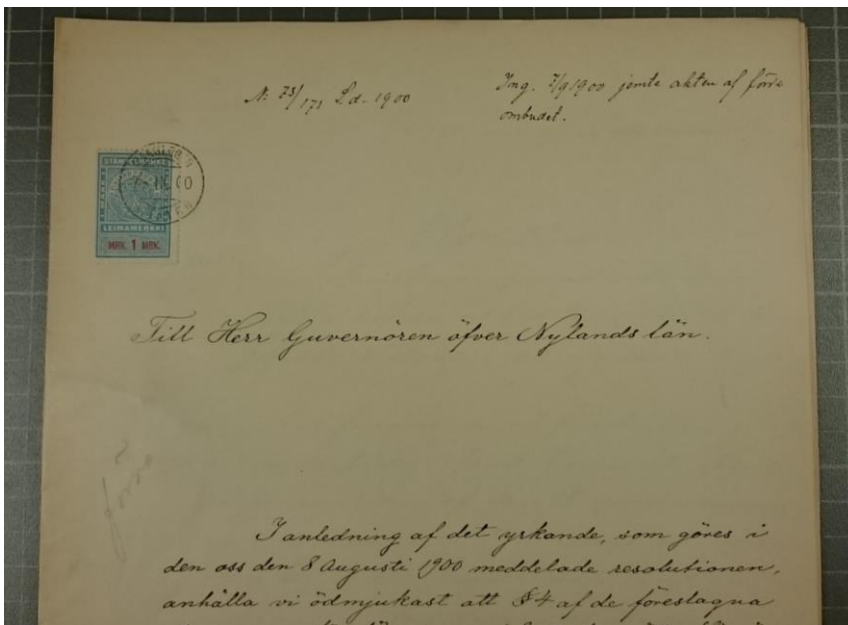 N: 73/171 Ld. 1900
Ing. 7/9 1900 jemte akten af förra
ombudet.
STÄMPELMÄRKE
LEIMAMERKKI
MRK. 1 MRK.
Till Herr Guvernören öfver Nylands län.
förra
I anledning af det yrkande, som göres i
den oss den 8 Augusti 1900 meddelade resolutionen,
anhålla vi ödmjukast att §4 af de föreslagna